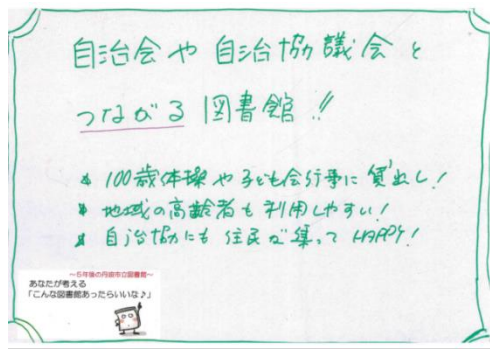 自治会や自治協議会と
つながる図書館!!
* 100歳体操や子ども会行事に貸出し!
* 地域の高齢者も利用しやすい!
* 自治協にも住民が集ってHAPPY!
~5年後の丹波市立図書館~
あなたが考える
「こんな図書館あったらいいな♪」